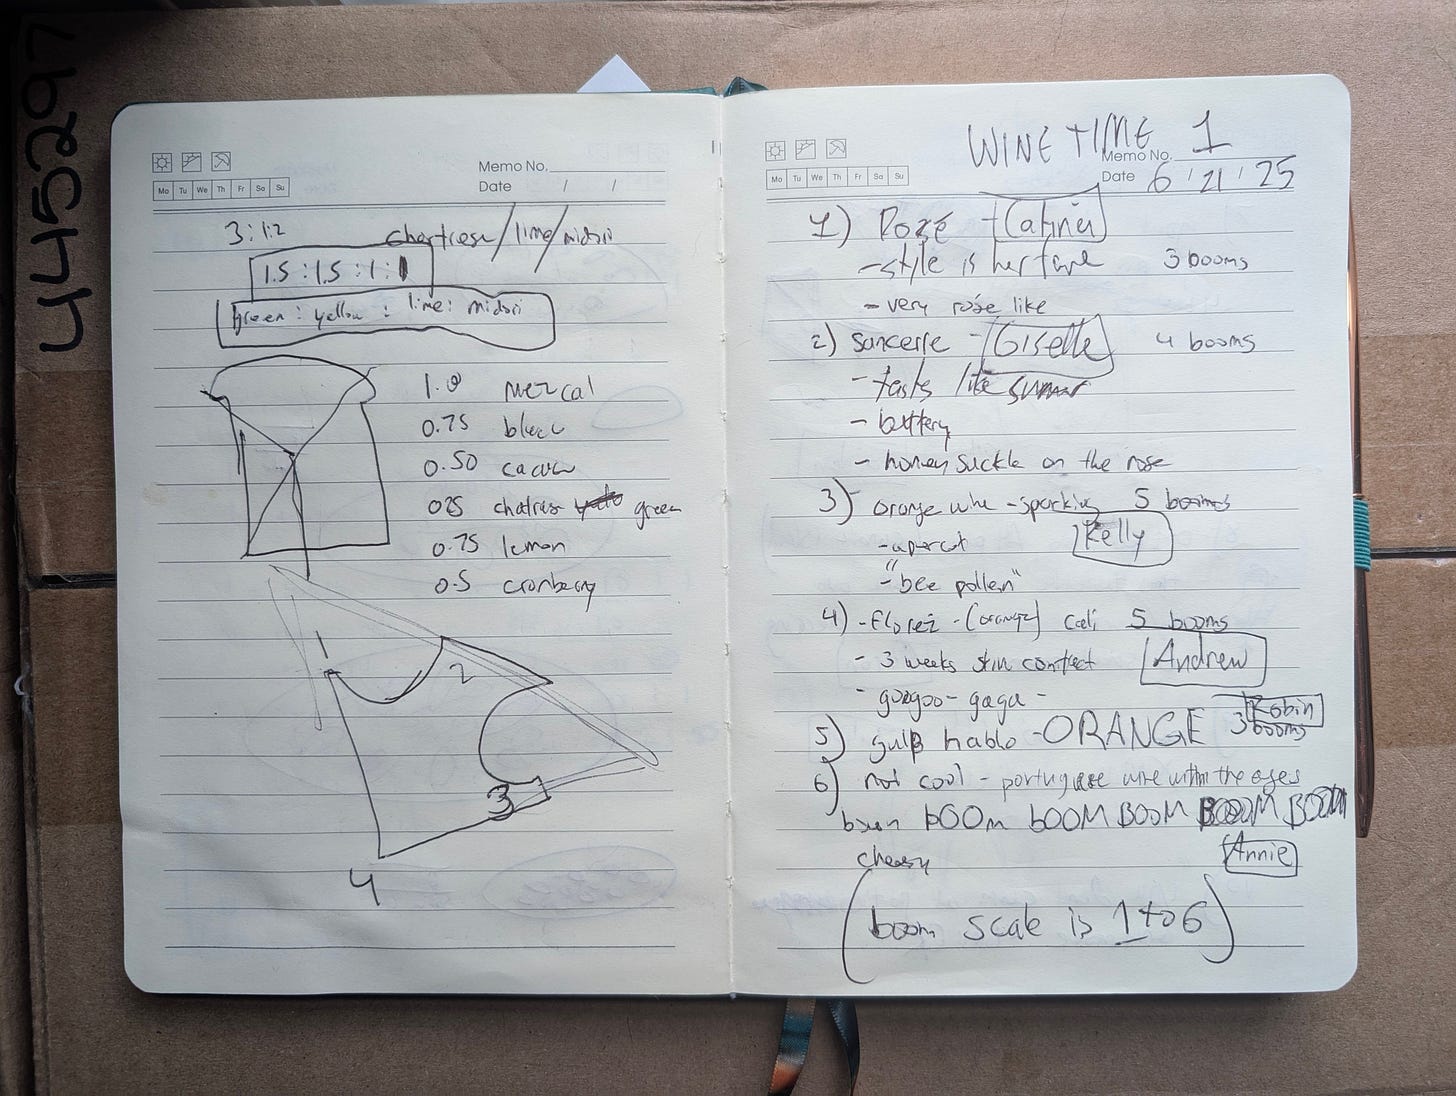 445297
Memo No.
Date / /
Mo Tu We Th Fr Sa Su
3:1:2 chartrese/lime/midori
1.5 : 1.5 : 1 : 1
green : yellow : lime : midori
1.0 mezcal
0.75
0.50
0.25 green
0.75 lemon
0.5 cranberry
2
3
4
WINE TIME 1
Memo No.
Date 6 / 21 / 25
Mo Tu We Th Fr Sa Su
1) Rozé -
- style is her 3 booms
- very rosé like
2) Sancerre - Giselle 4 booms
- tasts like summer
- buttery
- honey suckle on the rose
3) orange wine - sparking 5 booms
Kelly
"
- bee pollen"
4) - Florez - (orange) cali 5 booms
- 3 weeks skin contact Andrew
- googoo - gaga -
Robin
5) gulp hablo - ORANGE 3 booms
6) not cool - portuguese wine within the ages
boom bOOm bOOM BOOM BOOM BOOM
cheesy Annie
(boom scale is 1 to 6)